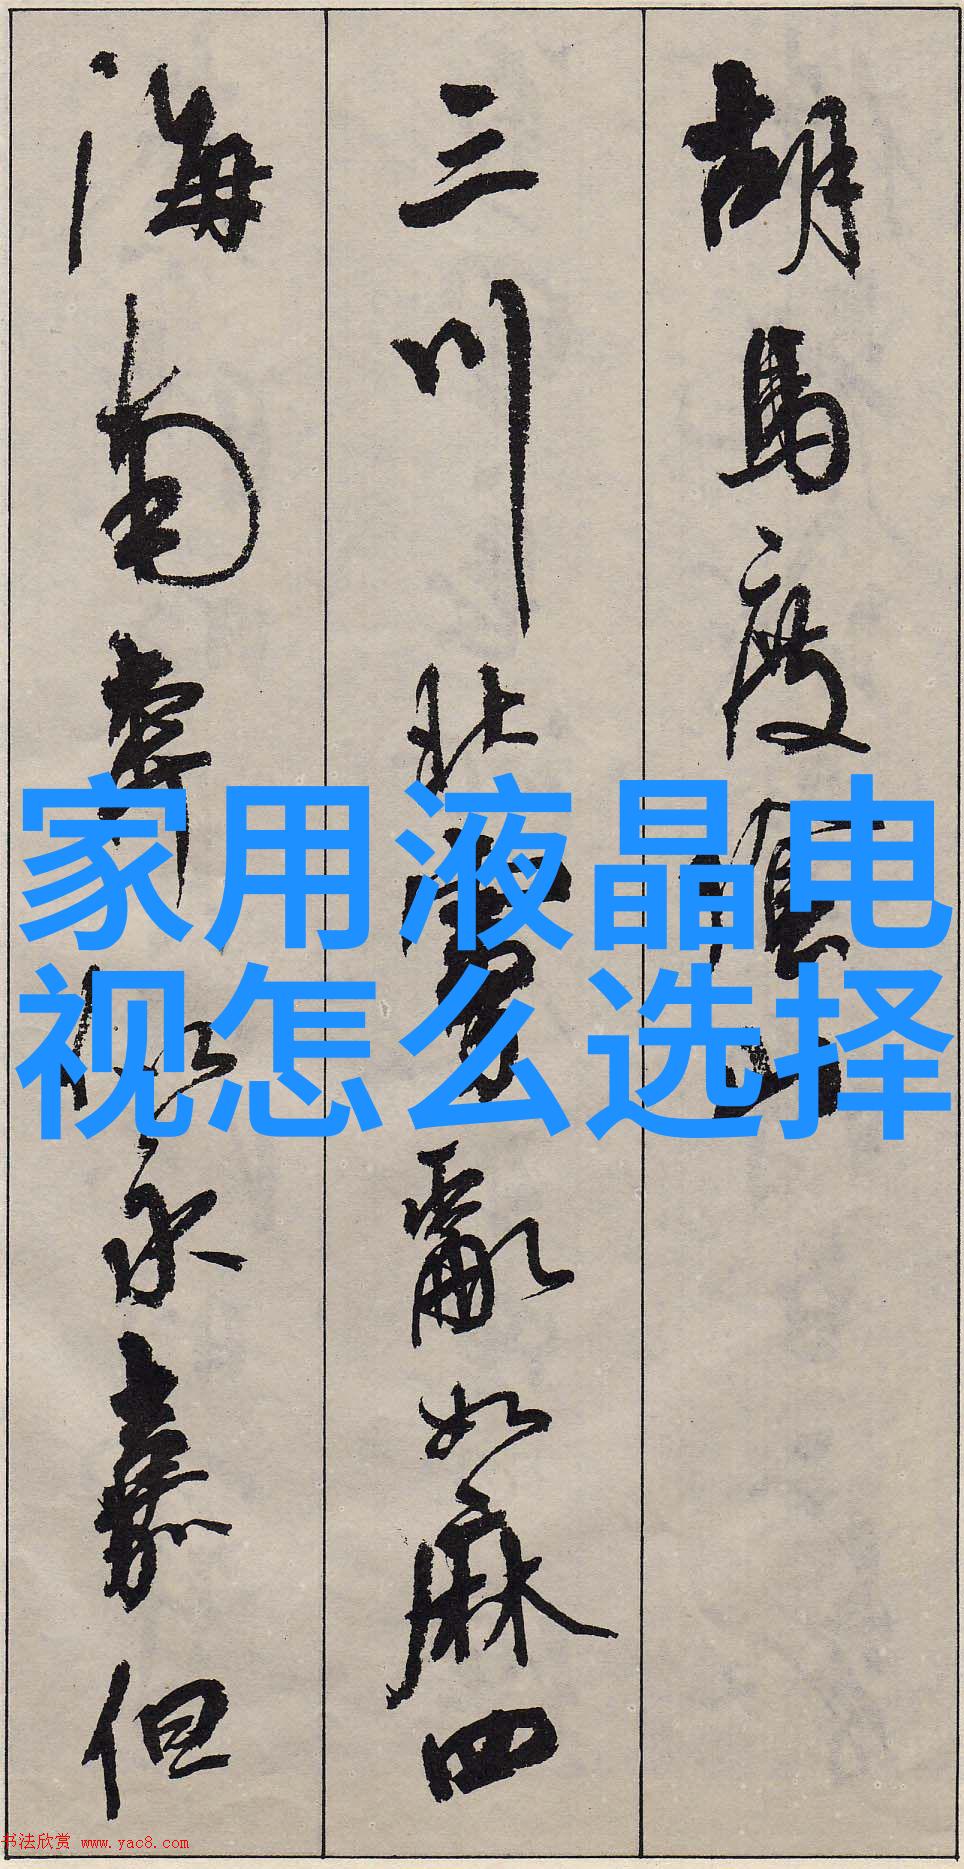 胡馬度陰山
三川北虜亂如麻四
海南奔似永嘉但
家用液晶电
视怎么选择
书法欣赏 www.yac8.com